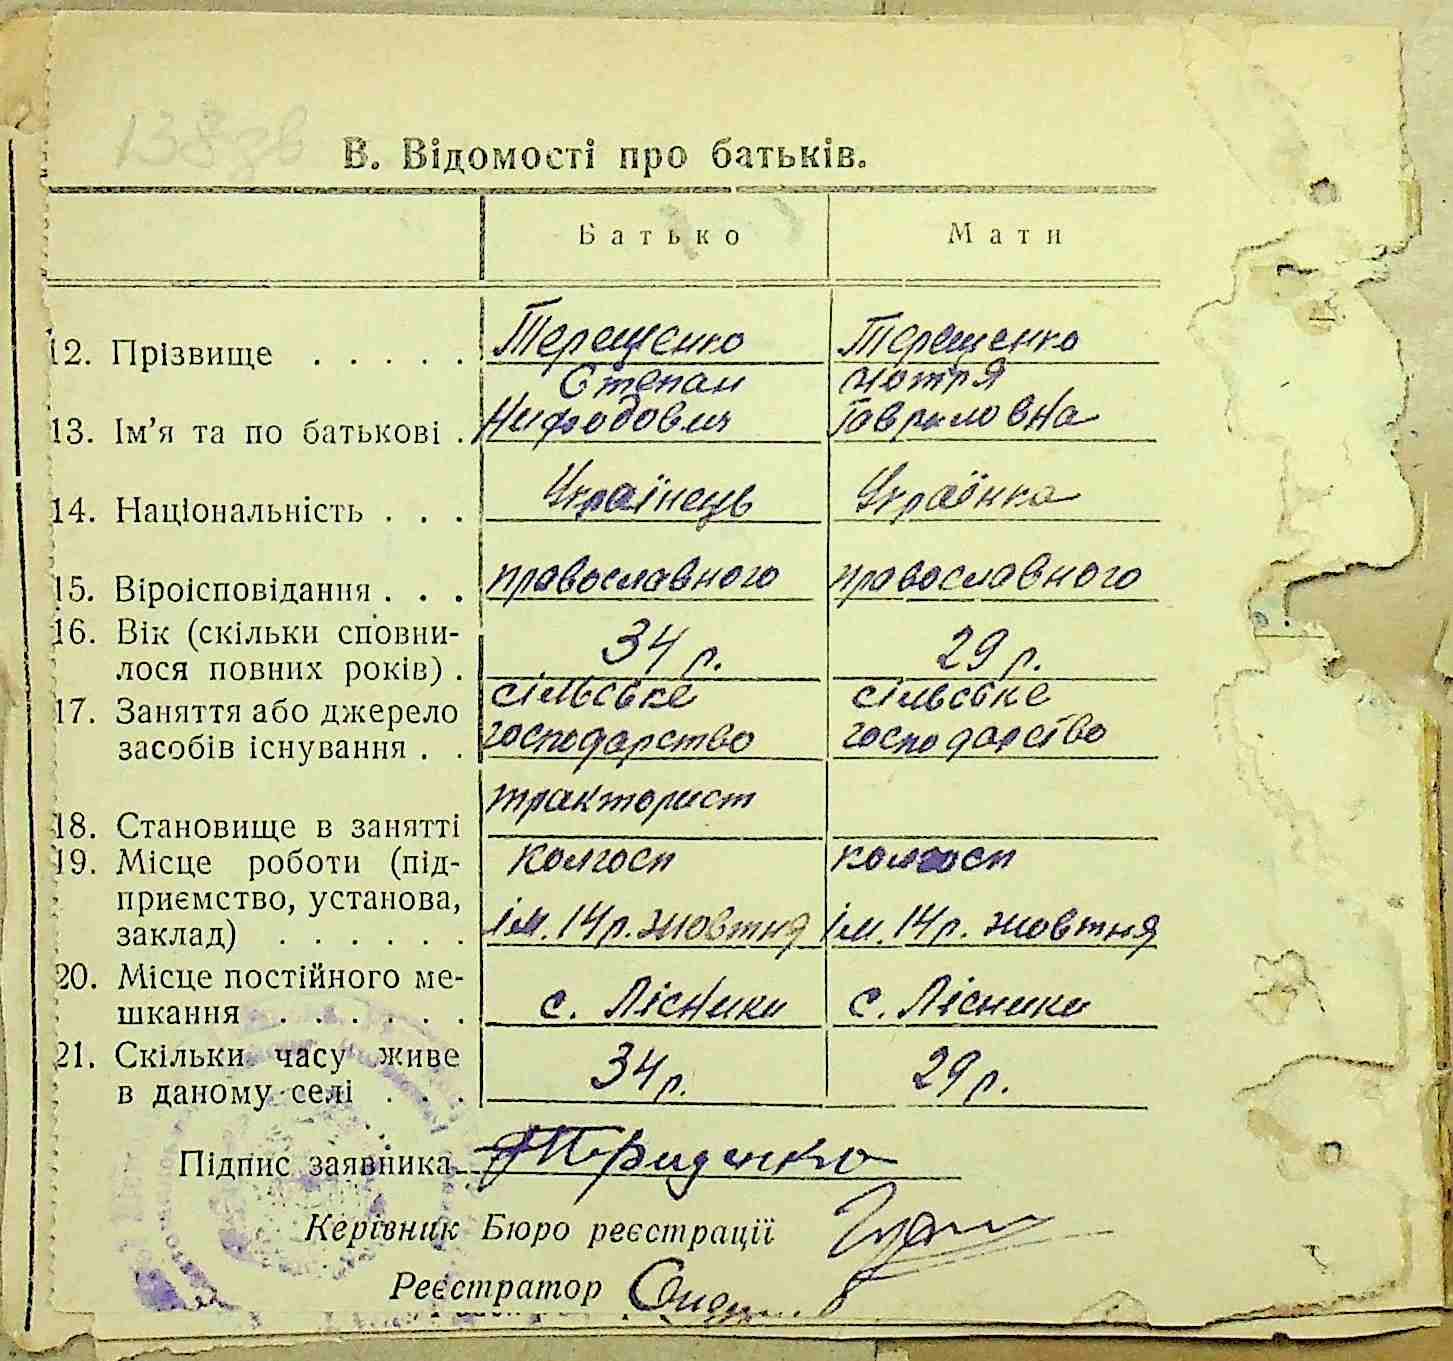 138 зв
В. Відомості про батьків.
Батько Мати
12. Прізвище . . . . . Терещенко Терещенко
Степан Мотря
13. Ім'я та по батькові . Нифодович Гавриловна
14. Національність . . . Українець Українка
15. Віроісповідання . . . православного православного
16. Вік (скільки сповни-
лося повних років) . 34 р. 29 р.
сільське сільське
17. Заняття або джерело
засобів існування . . господарство господарство
тракторист
18. Становище в занятті
19. Місце роботи (під- колгосп колгосп
приємство, установа,
заклад) . . . . . . ім. 14 р. жовтня ім. 14 р. жовтня
20. Місце постійного ме-
шкання . . . . . . с. Лісники с. Лісники
21. Скільки часу живе
в даному селі . . . 34 р. 29 р.
Підпис заявника
Керівник Бюро реєстрації
Реєстратор